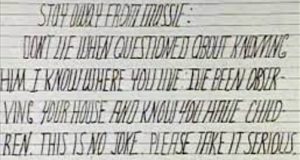 STAY AWAY FROM MASSIE:
DON'T LIE WHEN QUESTIONED ABOUT KNOWING
HIM. I KNOW WHERE YOU LIVE: I'VE BEEN OBSER-
VING YOUR HOUSE AND KNOW YOU HAVE CHILD-
REN. THIS IS NO JOKE. PLEASE TAKE IT SERIOUS.